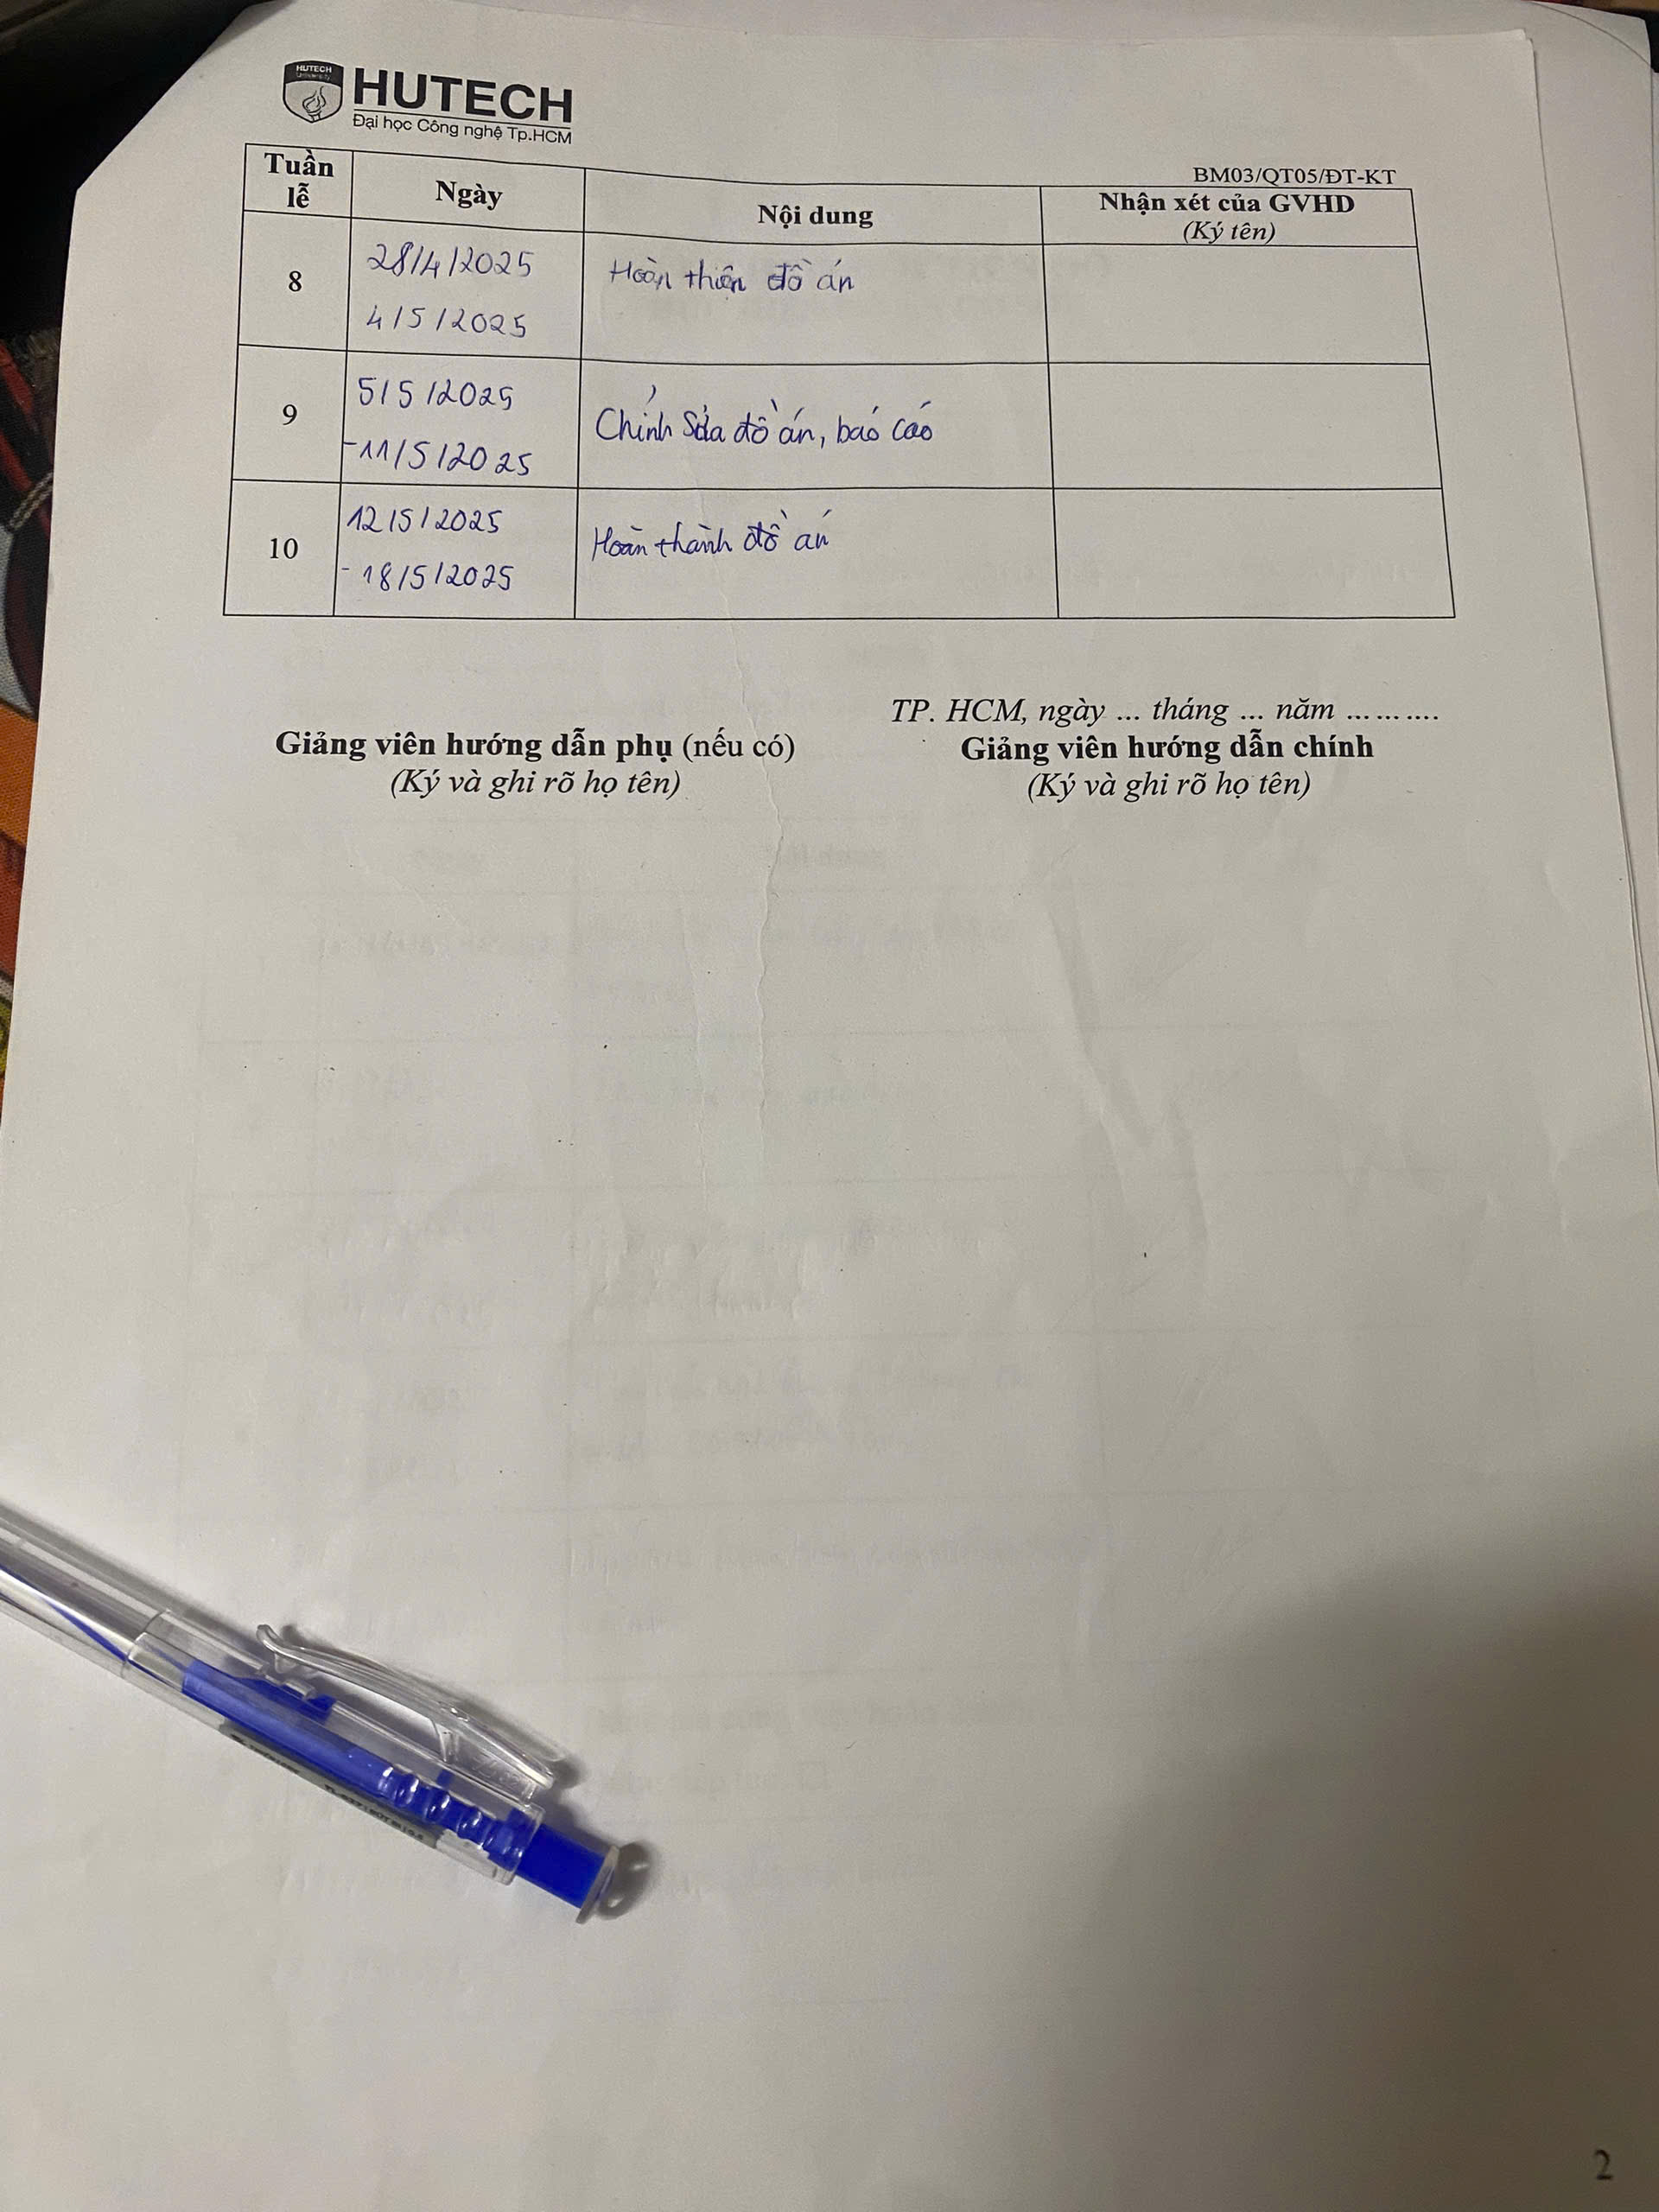 HUTECH
University
HUTECH
Đại học Công nghệ Tp.HCM
BM03/QT05/ĐT-KT
Tuần lễ
Ngày
Nội dung
Nhận xét của GVHD
(Ký tên)
8
28/4/2025
4/5/2025
Hoàn thiện đồ án
9
5/5/2025
-11/5/2025
Chỉnh sửa đồ án, báo cáo
10
12/5/2025
- 18/5/2025
Hoàn thành đồ án
TP. HCM, ngày ... tháng ... năm ..........
Giảng viên hướng dẫn phụ (nếu có)
(Ký và ghi rõ họ tên)
Giảng viên hướng dẫn chính
(Ký và ghi rõ họ tên)
2